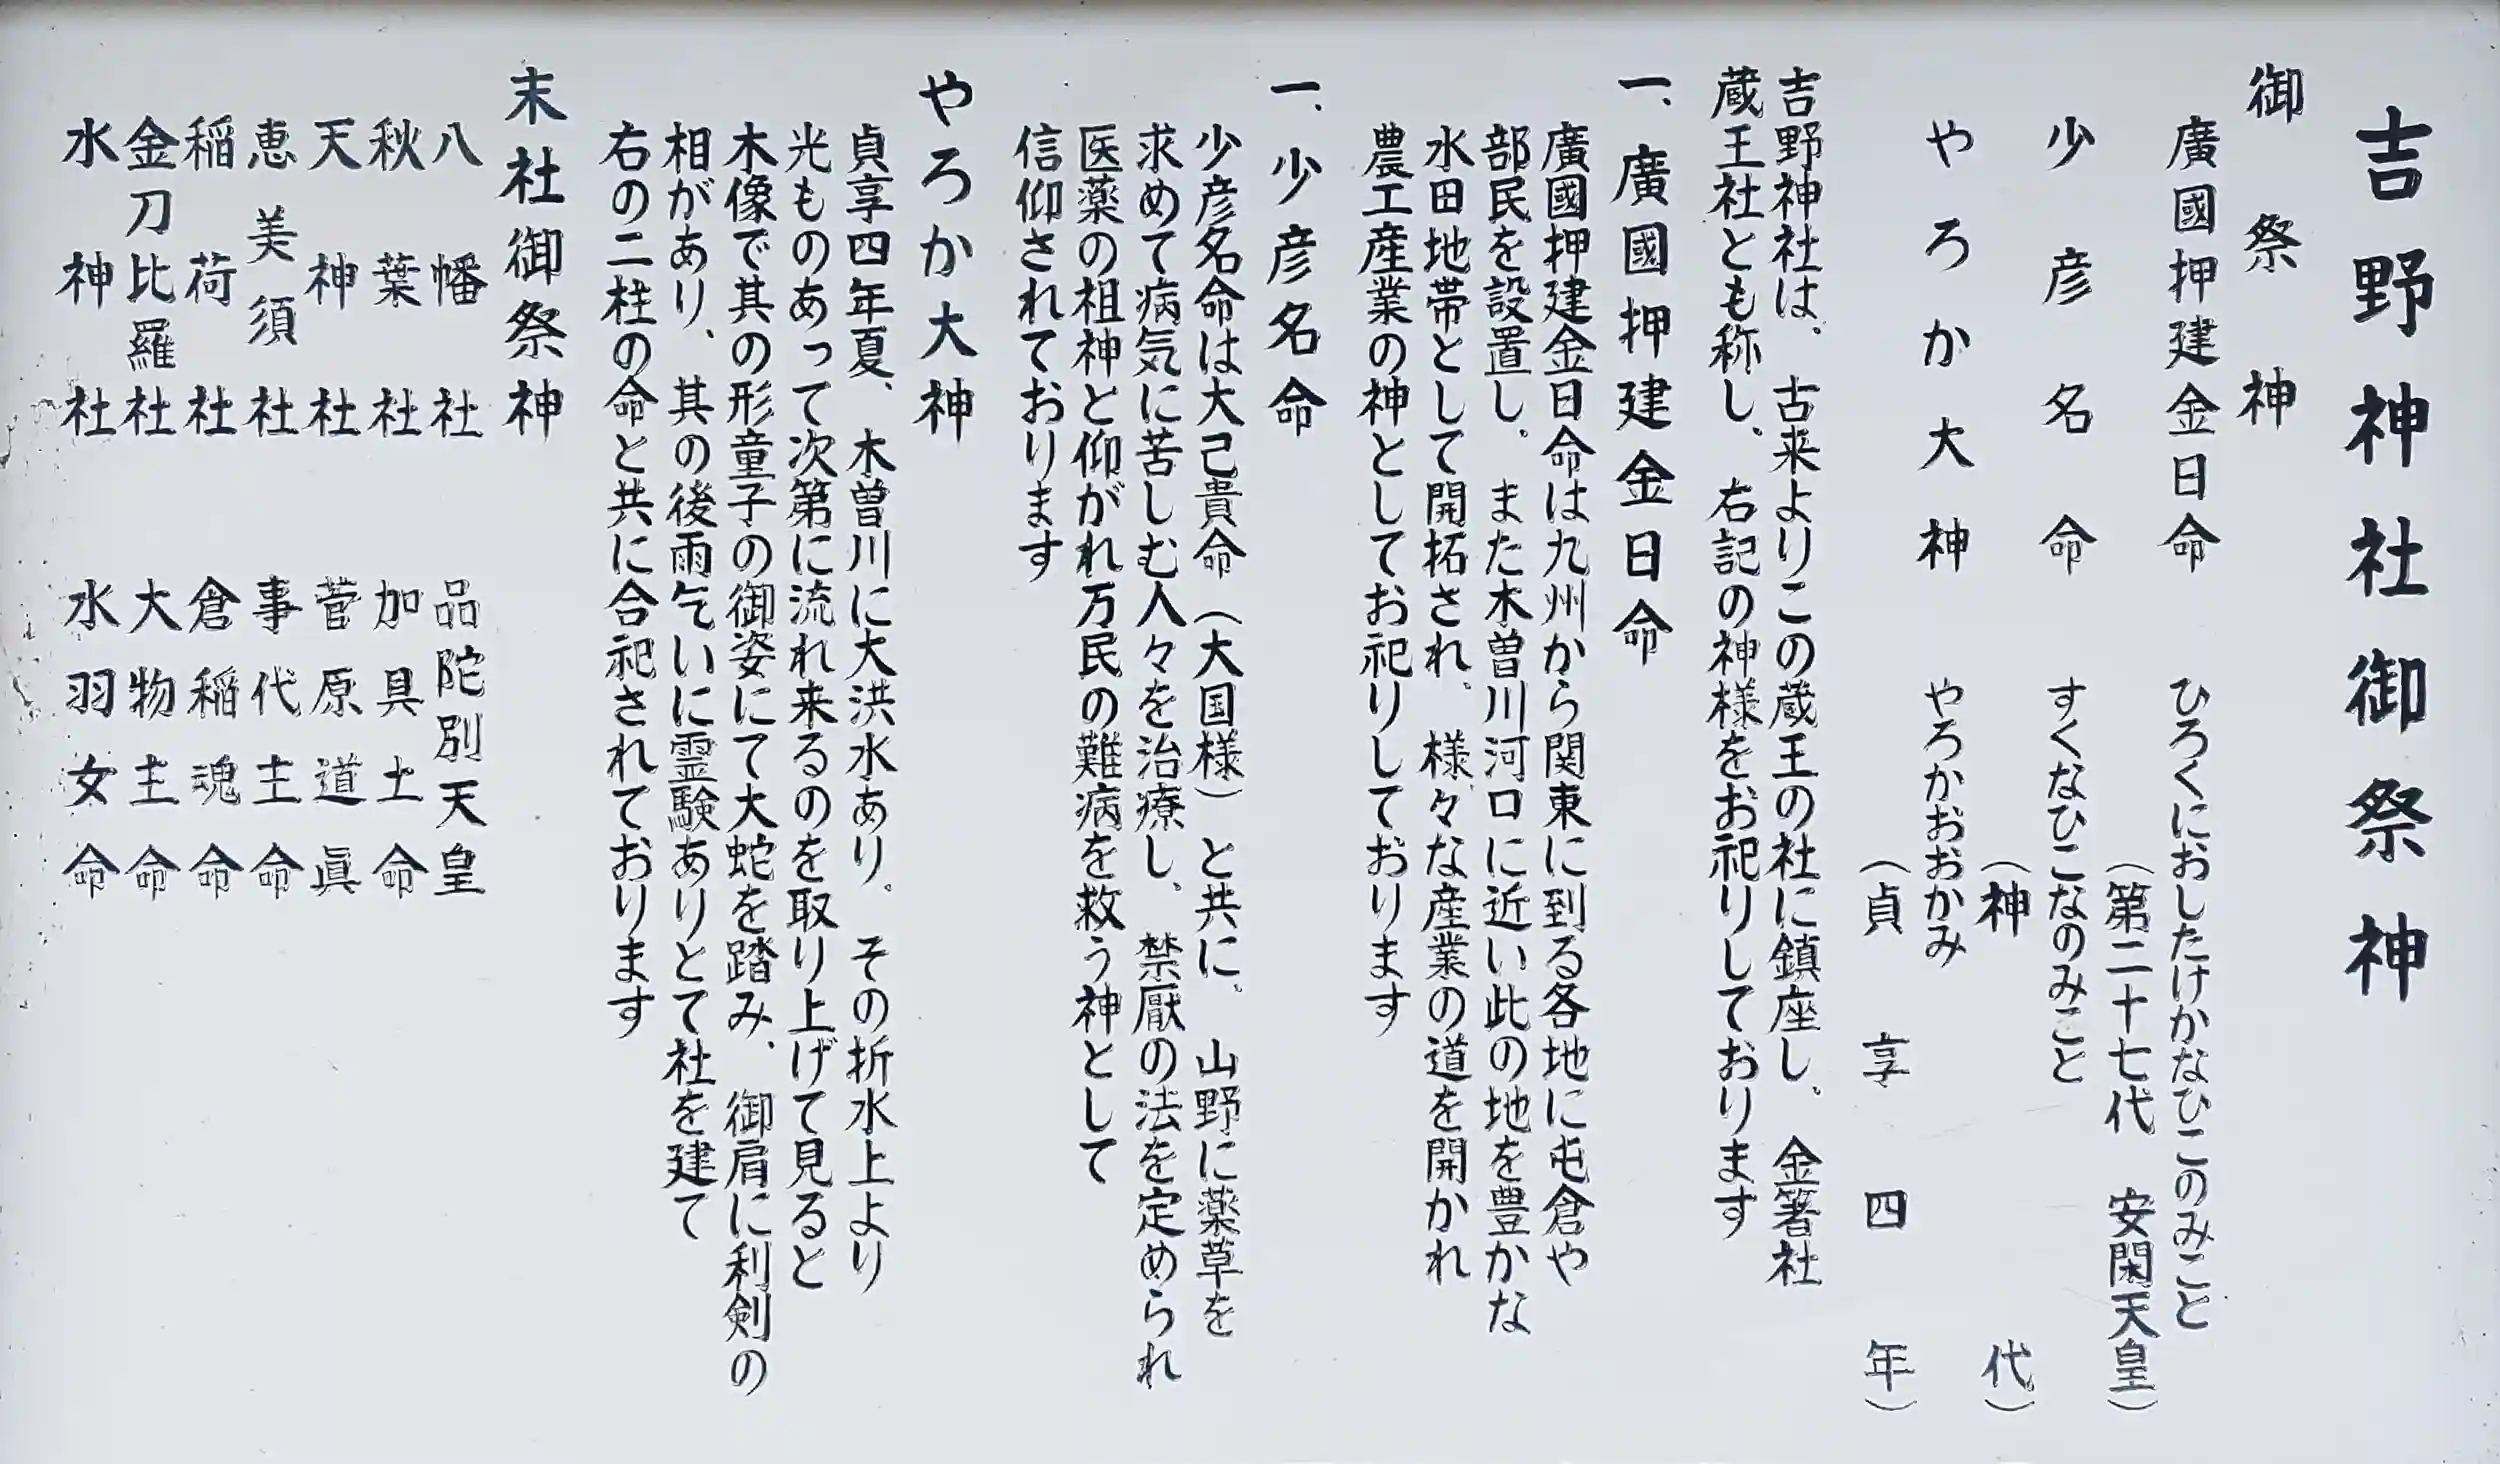 吉野神社御祭神
御祭神
廣國押建金日命 ひろくにおしたけかなひこのみこと
(第二十七代 安閑天皇)
少彦名命 すくなひこなのみこと
(神代)
やろか大神 やろかおおかみ
(貞享四年)
吉野神社は、古来よりこの蔵王の社に鎮座し、金箸社
蔵王社とも称し、右記の神様をお祀りしております
一、廣國押建金日命
廣國押建金日命は九州から関東に到る各地に屯倉や
部民を設置し、また木曽川河口に近い此の地を豊かな
水田地帯として開拓され、様々な産業の道を開かれ
農工産業の神としてお祀りしております
一、少彦名命
少彦名命は大己貴命(大国様)と共に、山野に薬草を
求めて病気に苦しむ人々を治療し、禁厭の法を定められ
医薬の祖神と仰がれ万民の難病を救う神として
信仰されております
やろか大神
貞享四年夏、木曽川に大洪水あり。その折水上より
光ものあって次第に流れ来るのを取り上げて見ると
木像で其の形童子の御姿にて大蛇を踏み、御肩に利剣の
相があり、其の後雨乞いに霊験ありとて社を建て
右の二柱の命と共に合祀されております
末社御祭神
八幡社 品陀別天皇
秋葉社 加具土命
天神社 菅原道眞
恵美須社 事代主命
稲荷社 倉稲魂命
金刀比羅社 大物主命
水神社 水羽女命